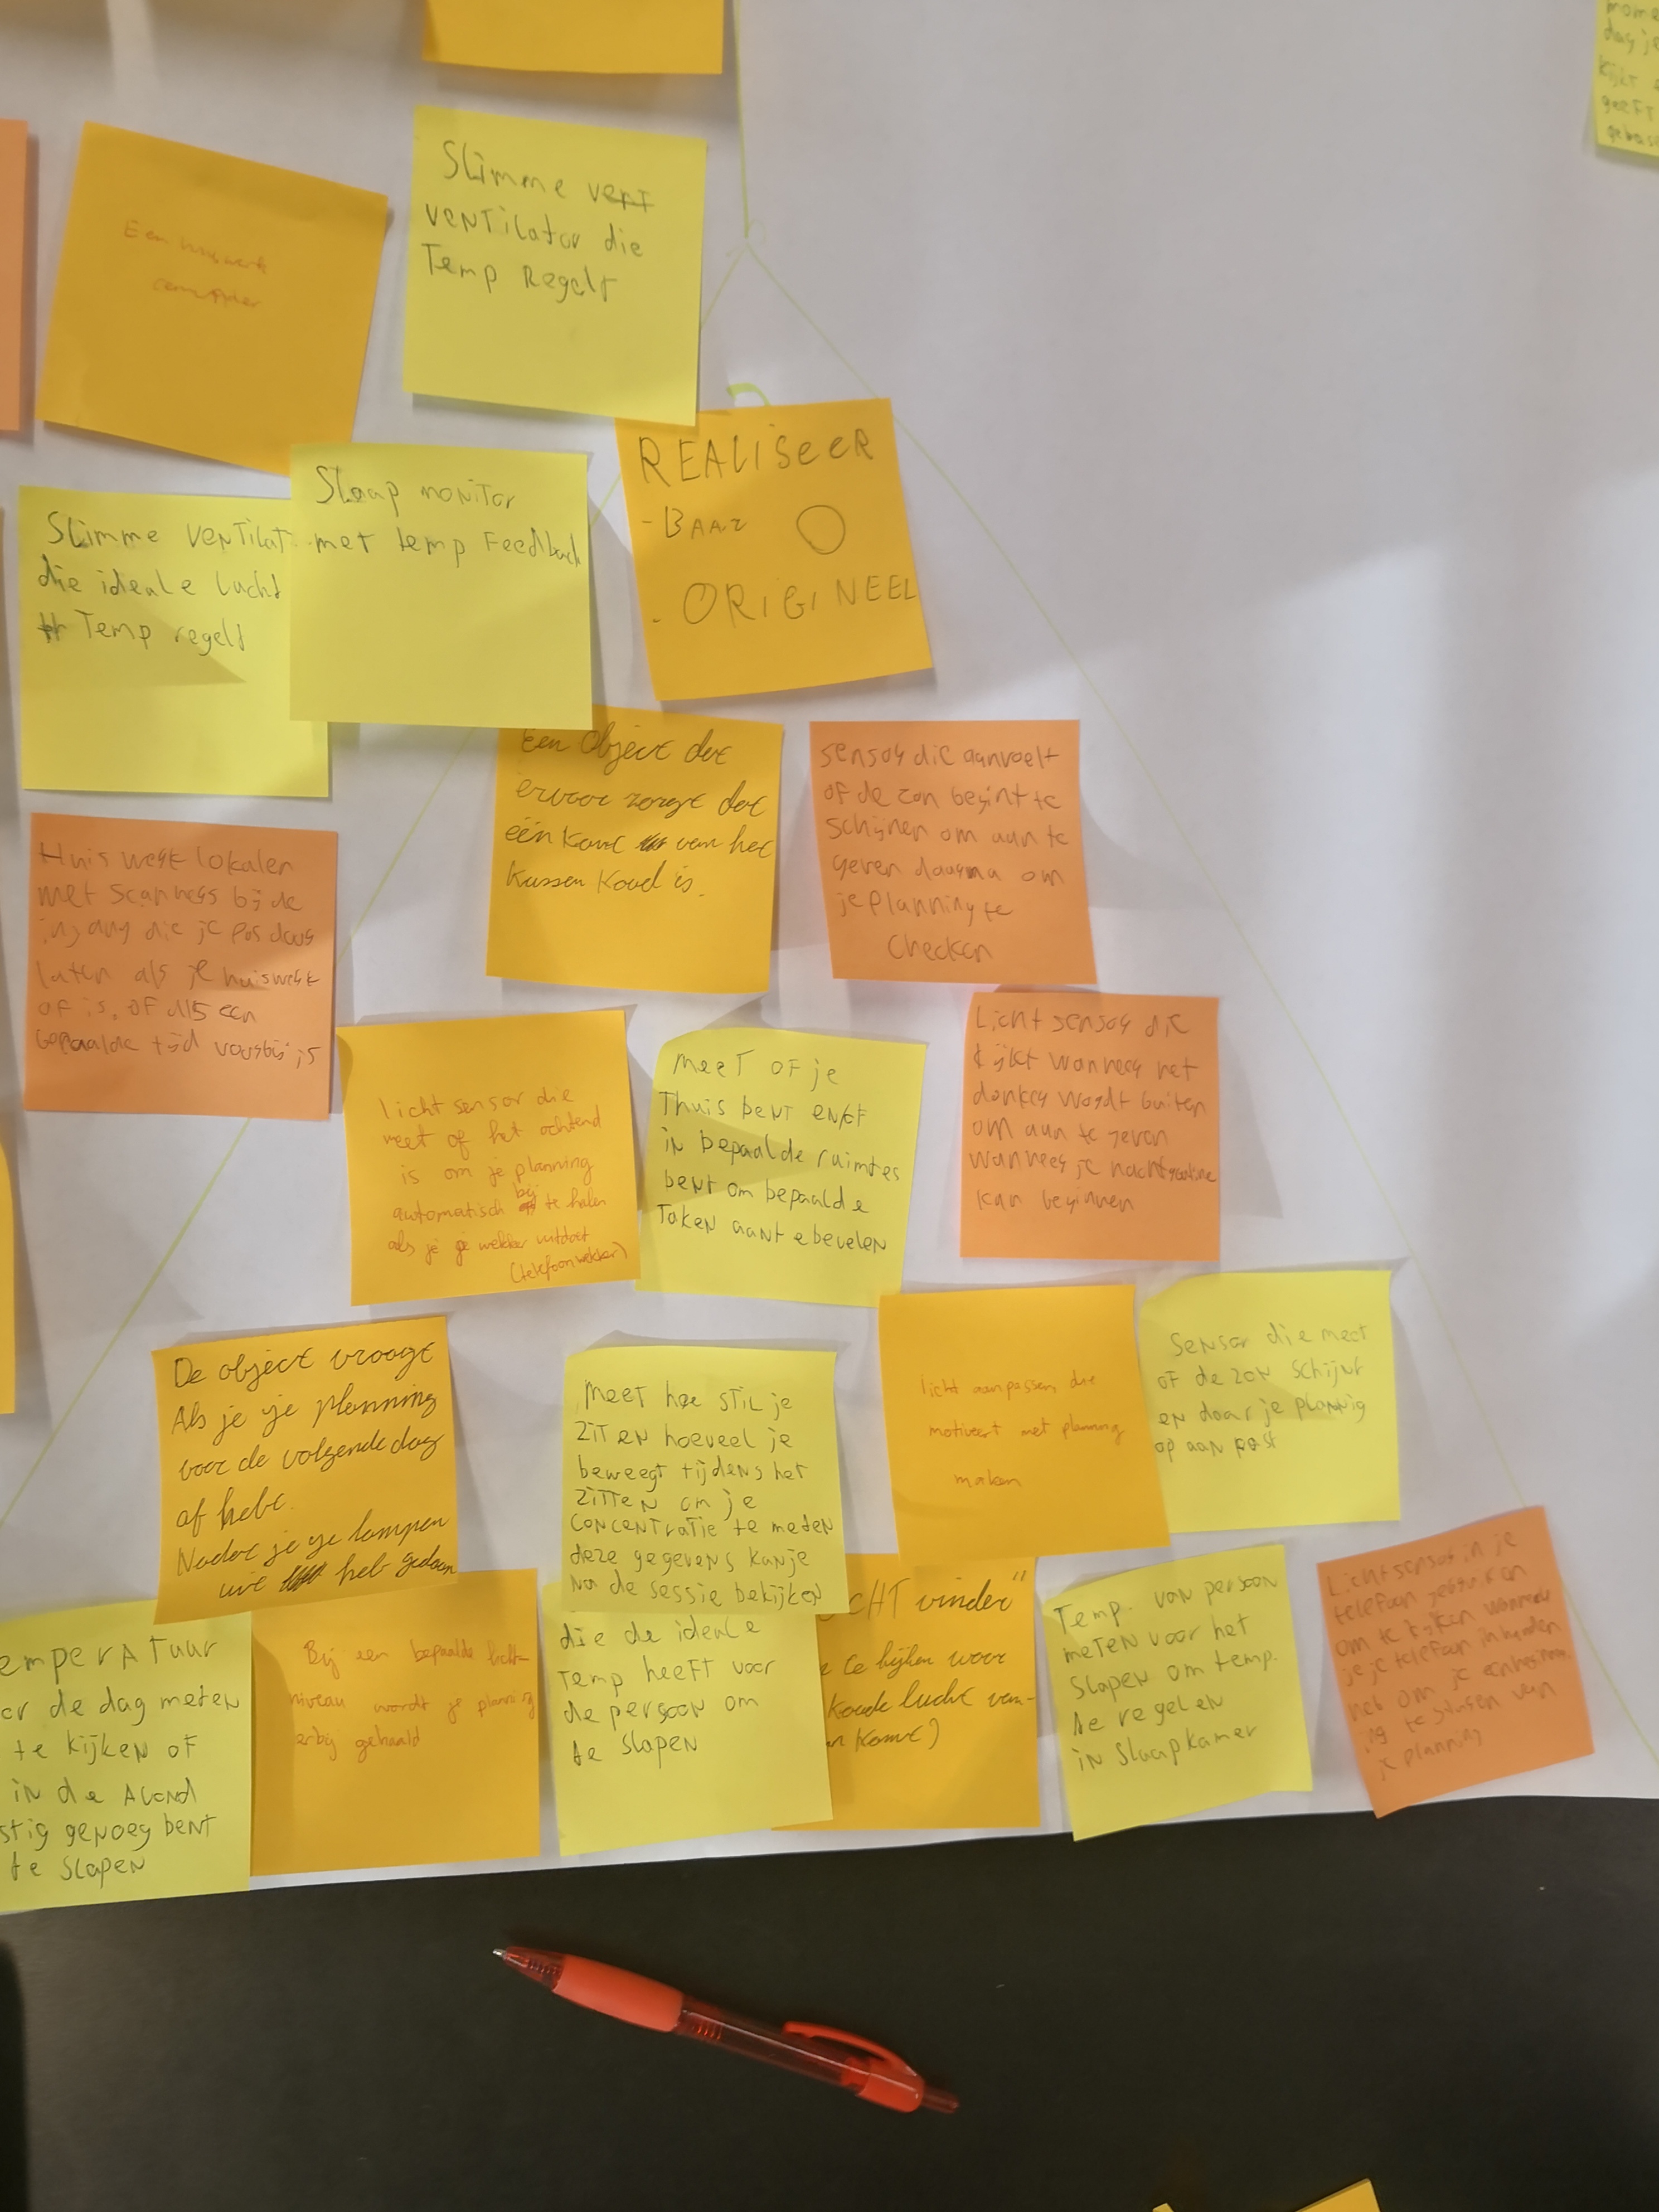 mome
dag je
kijkt
geeft
Slimme vent
ventilator die
Temp Regelt
Een huiswerk
REALISEER
- BAAR
- ORIGINEEL
Slaap monitor
met temp Feedback
Slimme ventilat
die ideale lucht
Temp regelt
Een object dat
ervoor zorgt dat
één kant van het
kussen koud is.
sensor die aanvoelt
of de zon begint te
schijnen om aan te
geven daarna om
je planning te
checken
Huis werk lokalen
met scanners bij de
ingang die je pas door
laten als je huiswerk
af is, of als een
bepaalde tijd voorbij is
licht sensor die
meet of het ochtend
is om je planning
automatisch bij te halen
als je je wekker uitdoet
(telefoonwekker)
meet of je
Thuis bent en/of
in bepaalde ruimtes
bent om bepaalde
Taken aan te bevelen
Licht sensor die
kijkt wanneer het
donker wordt buiten
om aan te geven
wanneer je nachtroutine
kan beginnen
De object vraagt
Als je je planning
voor de volgende dag
af hebt.
Nadat je je lampen
uit heb gedaan
meet hoe stil je
zit en hoeveel je
beweegt tijdens het
zitten om je
concentratie te meten
deze gegevens kan je
na de sessie bekijken
licht aanpassen, die
motiveert met planning
maken
Sensor die meet
of de zon schijnt
en daar je planning
op aan past
emperatuur
or de dag meten
te kijken of
in de Avond
stig genoeg bent
te slapen
Bij een bepaalde licht-
niveau wordt je planning
erbij gehaald
die de ideale
temp heeft voor
de persoon om
te slapen
CHT vinder"
te kijken waar
koude lucht van-
n komt)
Temp. van persoon
meten voor het
slapen om temp.
te regelen
in slaapkamer
Lichtsensor in je
telefoon gebruiken
om te kijken wanneer
je je telefoon in handen
heb om je een herinner
ing te sturen van
je planning